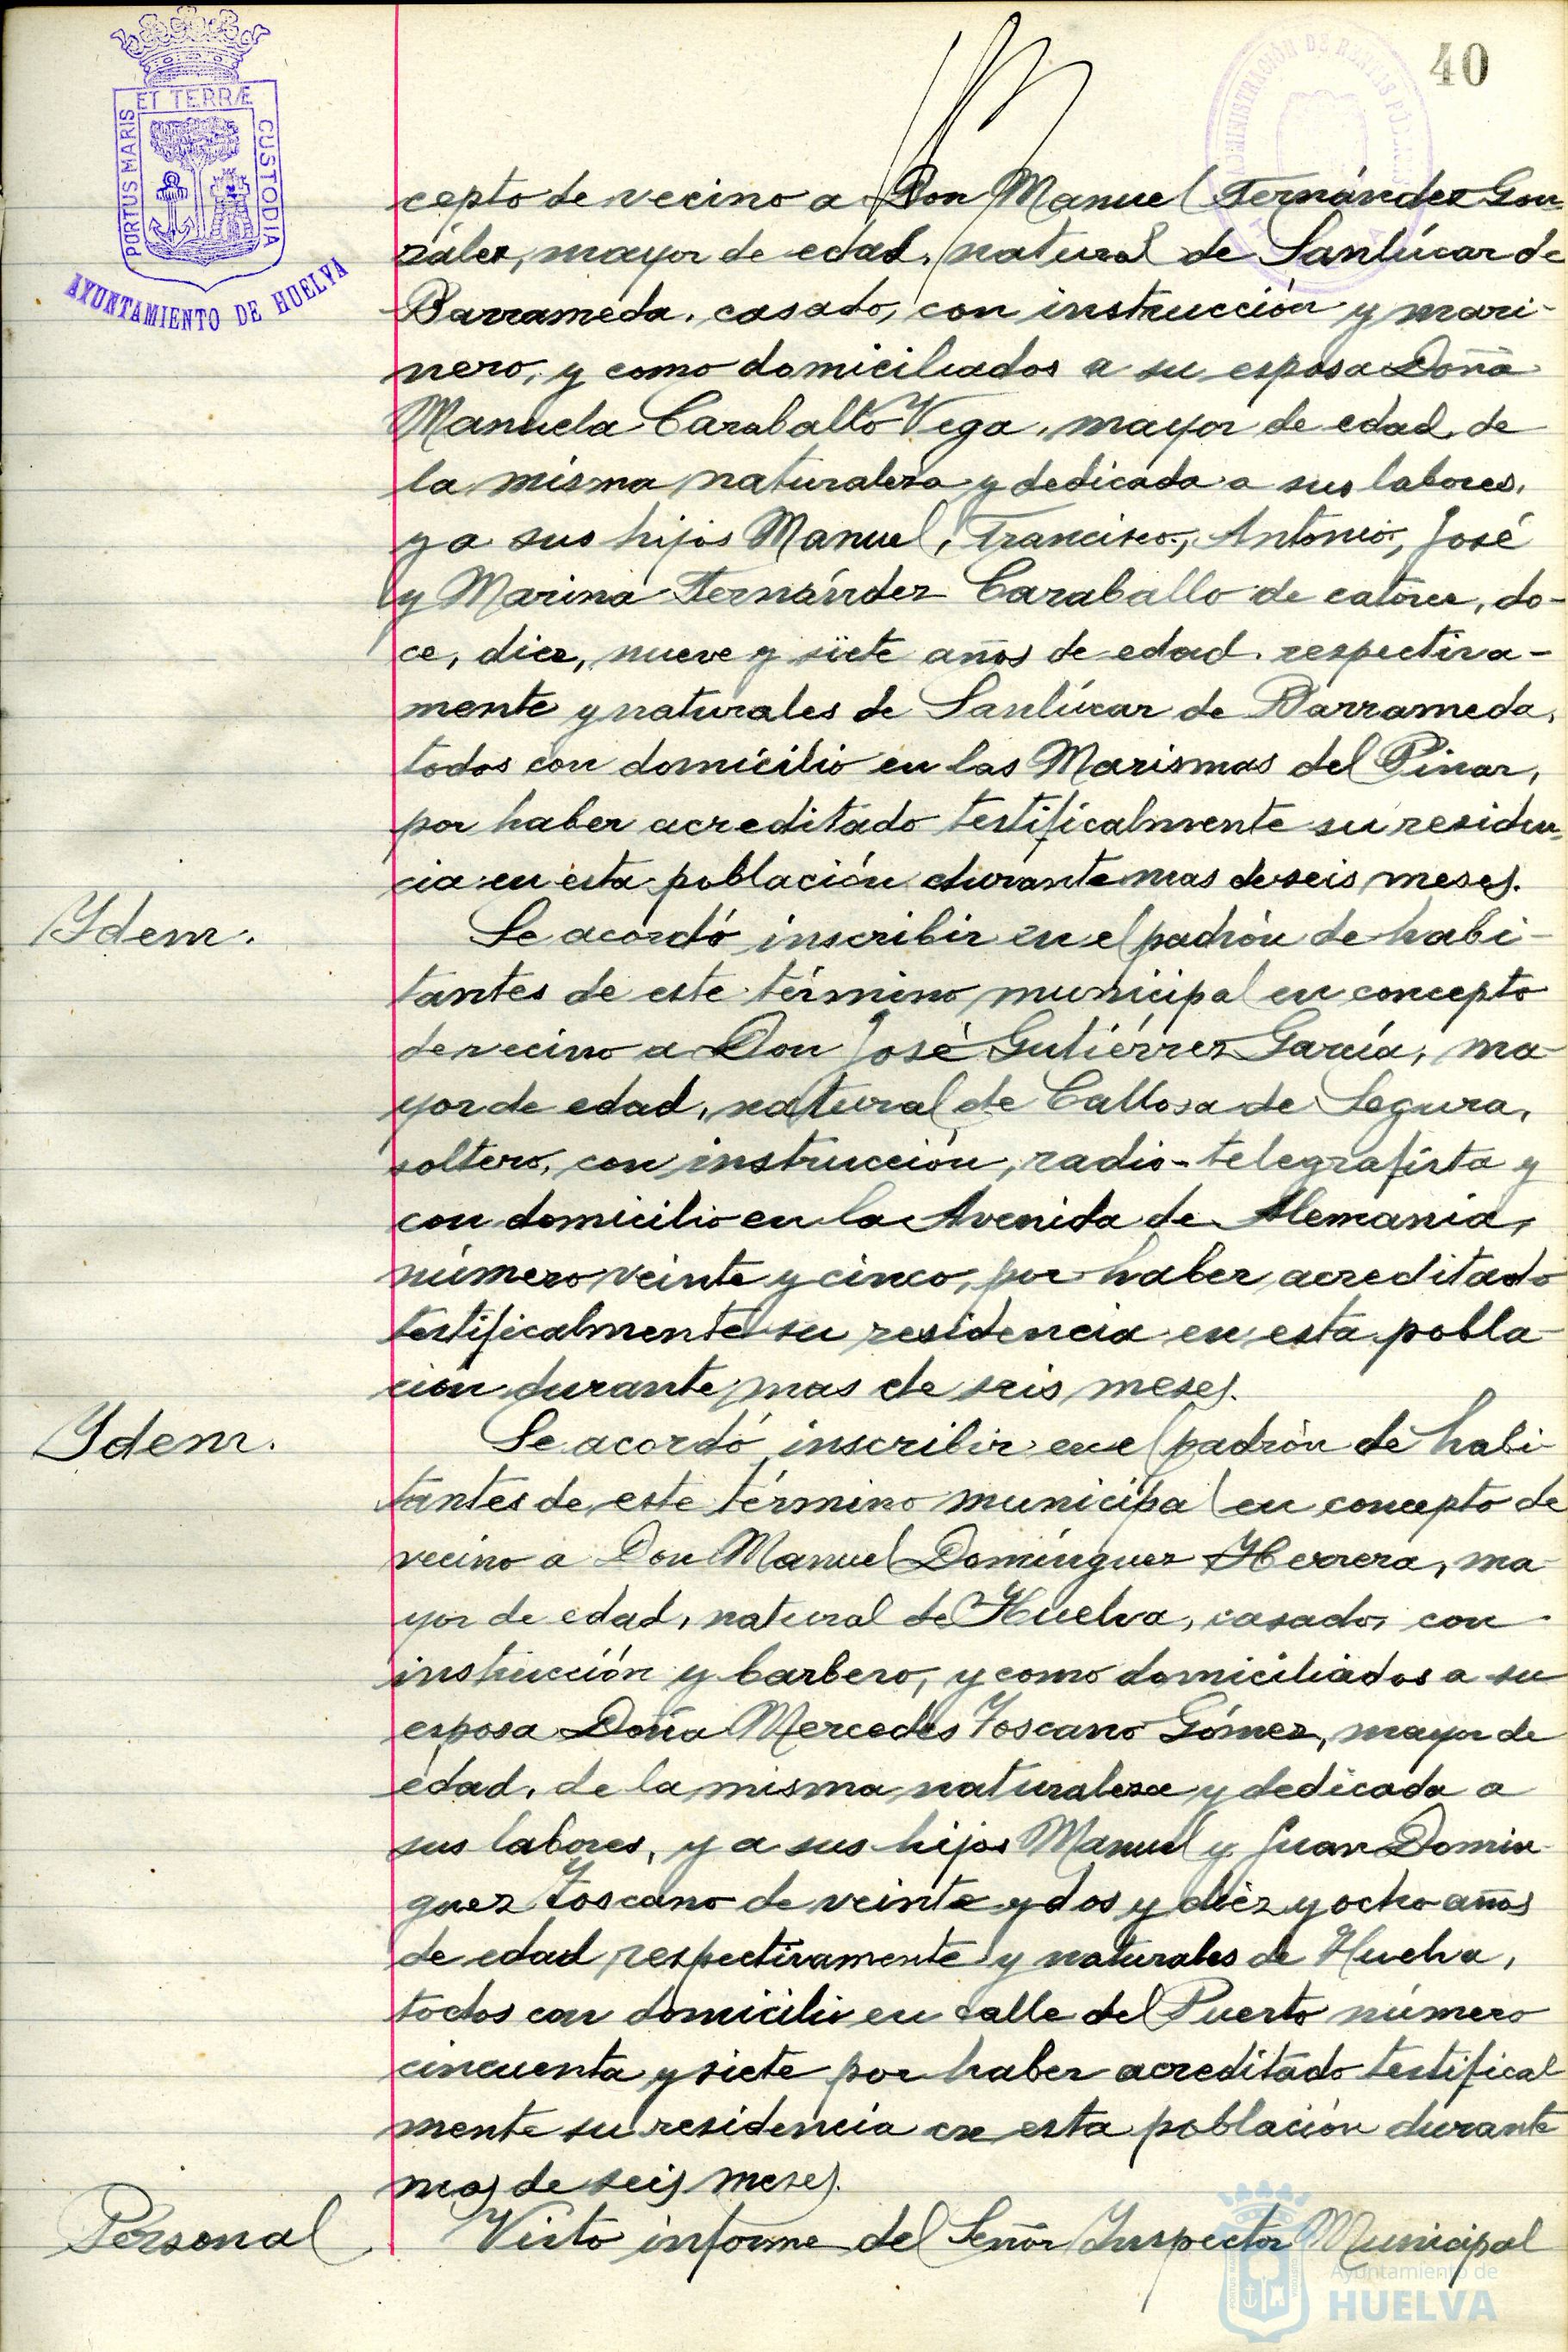 40
ET TERRÆ
PORTUS MARIS
CUSTODIA
AYUNTAMIENTO DE HUELVA
ADMINISTRACIÓN DE RENTAS PÚBLICAS
cepto de vecino a Don Manuel Fernández Gon
zález, mayor de edad, natural de Sanlúcar de
Barrameda, casado, con instrucción y mari-
nero, y como domiciliados a su esposa Doña
Manuela Caraballo Vega, mayor de edad, de
la misma naturaleza y dedicada a sus labores,
y a sus hijos Manuel, Francisco, Antonio, José
y Marina Fernández Caraballo de catorce, do-
ce, diez, nueve y siete años de edad respectiva-
mente y naturales de Sanlúcar de Barrameda,
todos con domicilio en las Marismas del Pinar,
por haber acreditado testificalmente su residen
cia en esta población durante mas de seis meses.
Ydem.
Se acordó inscribir en el padrón de habi-
tantes de este término municipal en concepto
de vecino a Don José Gutiérrez García, ma
yor de edad, natural de Callosa de Segura,
soltero, con instrucción, radio-telegrafista y
con domicilio en la Avenida de Alemania,
número veinte y cinco, por haber acreditado
testificalmente su residencia en esta pobla-
ción durante mas de seis meses.
Ydem.
Se acordó inscribir en el padrón de habi-
tantes de este término municipal en concepto de
vecino a Don Manuel Domínguez Herrera, ma
yor de edad, natural de Huelva, casado, con
instrucción y barbero, y como domiciliados a su
esposa Doña Mercedes Toscano Gómez, mayor de
edad, de la misma naturaleza y dedicada a
sus labores, y a sus hijos Manuel y Juan Domin
guez Toscano de veinte y dos y diez y ocho años
de edad respectivamente y naturales de Huelva,
todos con domicilio en calle del Puerto número
cincuenta y siete por haber acreditado testifical
mente su residencia en esta población durante
mas de seis meses.
Personal
Visto informe del Señor Inspector Municipal
Ayuntamiento de
HUELVA